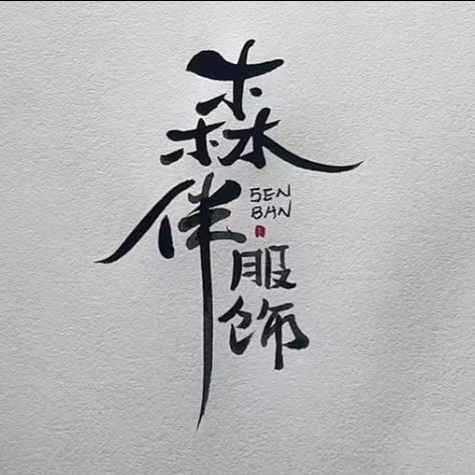 森伴
SEN
BAN
服饰